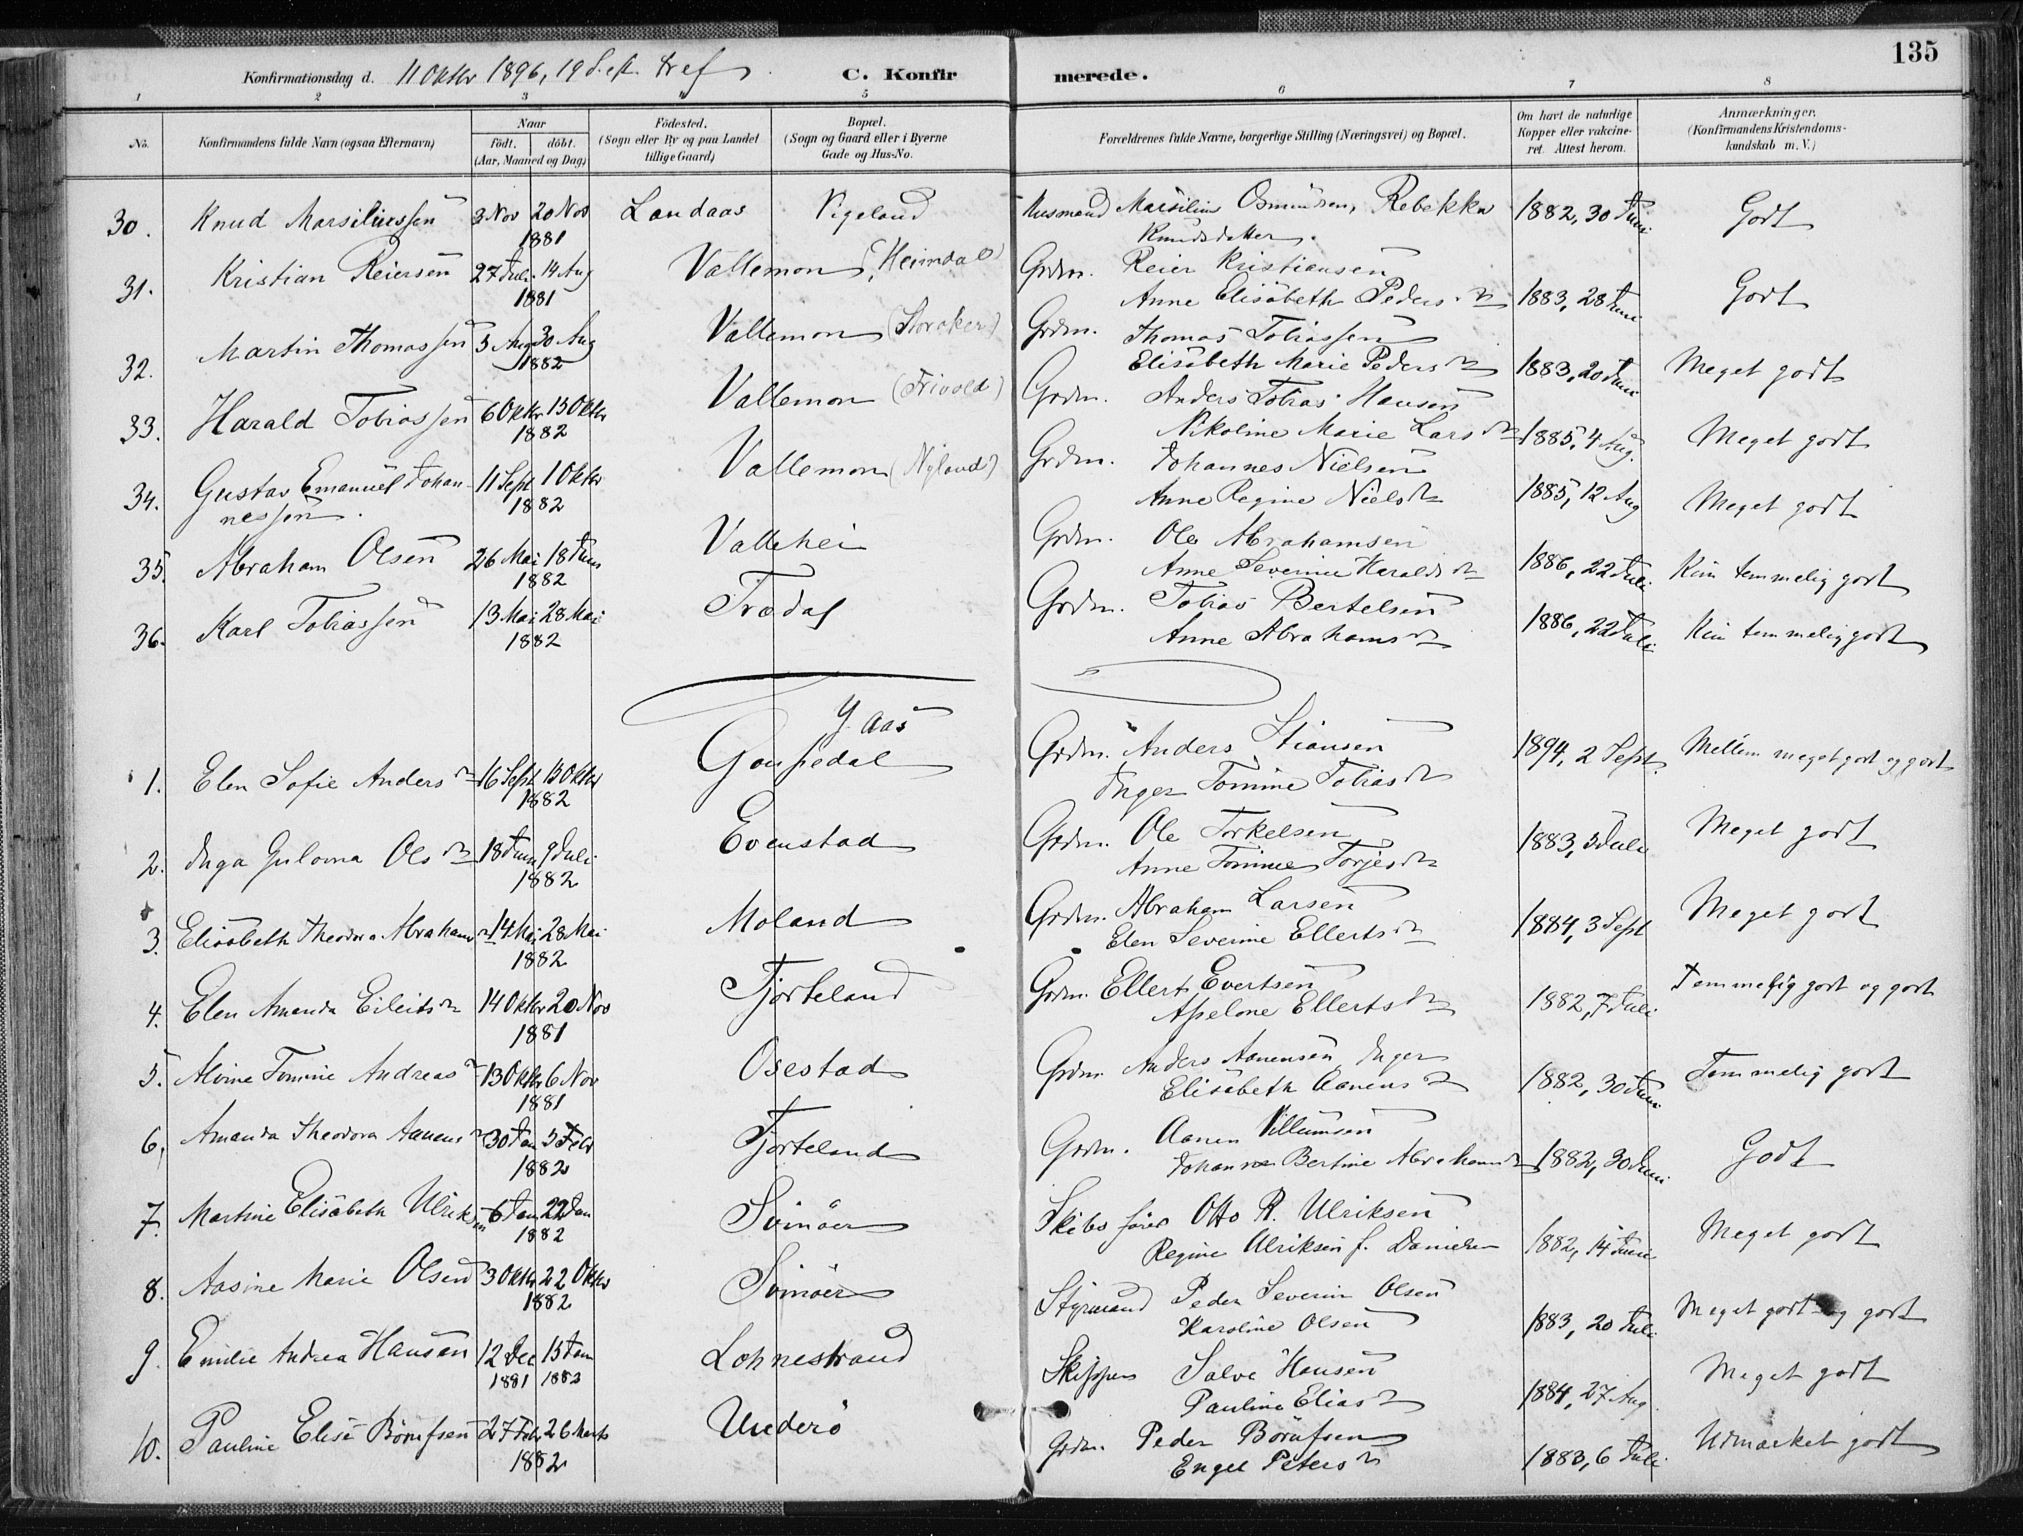 135
Konfirmationsdag d. 11 Oktbr 1896, 19 S. e. Tref C. Konfirmerede.
1 2 3 4 5 6 7 8
No. Konfirmandens fulde Navn (ogsaa Efternavn) Naar født. døbt. (Aar, Maaned og Dag) Fødested. (Sogn eller By og paa Landet tillige Gaard) Bopæl. (Sogn og Gaard eller i Byerne Gade og Hus-No. Forældrenes fulde Navne, borgerlige Stilling (Næringsvei) og Bopæl. Om havt de naturlige Kopper eller vaccineret. Attest herom. Anmærkninger. (Konfirmandens Kristendomskundskab m. V.)
30. Knud Marsiliussen 3 Nov 20 Nov 1881 Landaas Vigeland Husmand Marsilius Osmundsen, Rebekka Knudsdatter. 1882, 30 Juni Godt
31. Kristian Reiersen 27 Juli 14 Aug 1881 Vallemon (Heimdal) Grdm. Reier Kristiansen Anne Elisabeth Pedersdr 1883, 28 Juni Godt
32. Martin Thomassen 5 Aug 30 Aug 1882 Vallemon (Storaker) Grdm. Thomas Tobiassen Elisabeth Marie Pedersdr 1883, 20 Juni Meget godt
33. Harald Tobiassen 6 Oktbr 15 Oktbr 1882 Vallemon (Trivold) Grdm. Anders Tobias Hansen Nikoline Marie Larsdr 1885, 4 Aug. Meget godt
34. Gustav Emanuel Johannessen. 11 Sept 1 Oktbr 1882 Vallemon (Nyland) Grdm. Johannes Nielsen Anne Regine Nielsdr 1885, 12 Aug Meget godt
35. Abraham Olsen 26 Mai 18 Juni 1882 Vallehei Grdm. Ole Abrahamsen Anne Severine Haraldsdr 1886, 22 Juli Kun temmelig godt
36. Karl Tobiassen 13 Mai 28 Mai 1882 Trædal Grdm. Tobias Bertelsen Anne Abrahamsdr 1886, 22 Juli Kun temmelig godt
Y. Aas
1. Elen Sofie Andersdr 16 Sept 15 Oktbr 1882 Goupedal Grdm. Anders Stiansen Inger Tomine Tobiasdr 1894, 2 Sept. Mellem meget godt og godt
2. Inga Gulovna Olsdr 18 Juni 9 Juli 1882 Evenstad Grdm. Ole Torkelsen Anne Tomine Torjesdr 1883, 5 Juli Meget godt
3. Elisabeth Theodora Abrahamsdr 14 Mai 28 Mai 1882 Moland Grdm. Abraham Larsen Elen Severine Ellertsdr 1884, 3 Sept Meget godt
4. Elen Amanda Eilertsdr 14 Oktbr 20 Nov 1881 Fjorteland Grdm. Ellert Evertsen Apelone Ellertsdr 1882, 7 Juli Temmelig godt og godt
5. Alvine Tomine Andreasdr 13 Oktbr 6 Nov 1881 Osestad Grdm. Anders Aanensen Inger Elisabeth Aanensdr 1882, 30 Juni Temmelig godt
6. Amanda Theodora Aanensdr 30 Jan 5 Febr 1882 Fjorteland Grdm. Aanen Villumsen Johanne Bertine Abrahamsdr 1882, 30 Juni Godt
7. Martine Elisabeth Ulriksen 6 Jan 22 Jan 1882 Svinöer Skibsfører Otto R. Ulriksen Regine Ulriksen f. Danielsen 1882, 14 Juni Meget godt
8. Aasine Marie Olsen 3 Oktbr 22 Oktbr 1882 Svinöer Styrmand Peder Severin Olsen Karoline Olsen 1883, 20 Juli Meget godt og godt
9. Emilie Andrea Hansen 12 Dec 1881 15 Jan 1882 Lohnestrand Skipper Salve Hansen Pauline Eliasdr 1884, 27 Aug. Meget godt
10. Pauline Elise Börufsen 27 Febr 26 Marts 1882 Underö Grdm. Peder Börufsen Engel Petersdr 1883, 6 Juli Udmærket godt